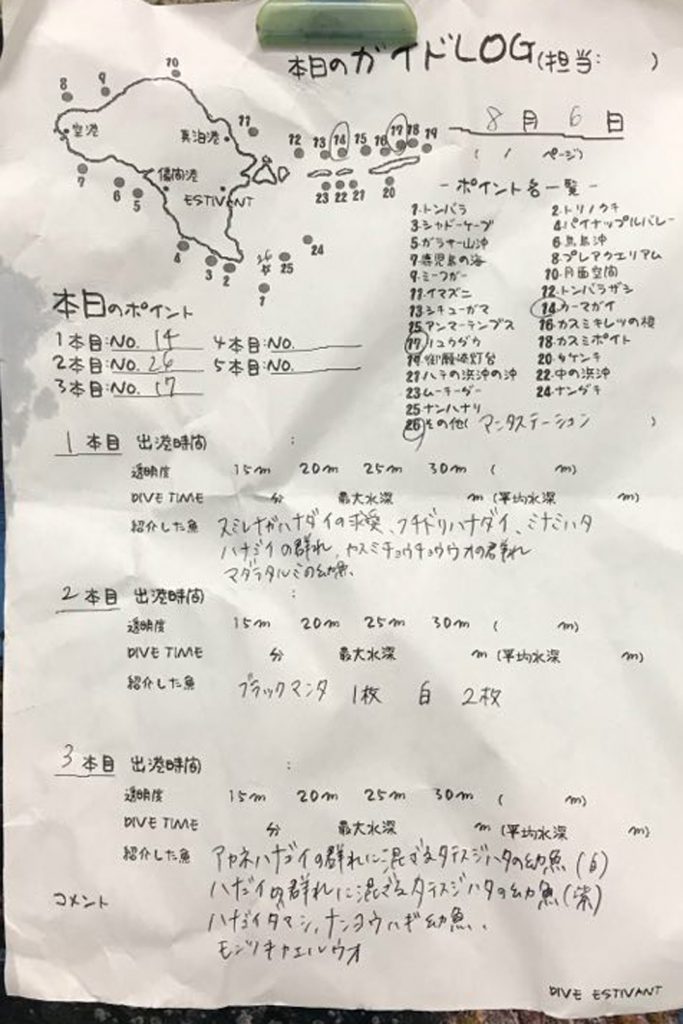 本日のガイドLOG(担当:　　)
8月6日
( / ページ)
10
8 9
空港
真泊港
11
12 13 14 15 16 17 18 19
7
6 5
儀間港
ESTIVANT
23 22 21 20
4
3 2
26 25 24
1
-ポイント名一覧-
1.トンバラ 2.トリノクチ
3.シャドーケーブ 4.パイナップルバレー
5.ガラサー山沖 6.鳥島沖
7.鹿児島の海 8.プレアクエリアム
9.ミーフガー 10.月面空間
11.イマズニ 12.トンバラザシ
13.シチューガマ 14.ウーマガイ
15.アンマーテンプス 16.カスミキレツの根
17.リュウダウ 18.カスミポイト
19.御願崎灯台 20.タケンチ
21.ハテの浜沖の沖 22.中の浜沖
23.ムーチーダー 24.ナンダキ
25.ナンハナリ
26.その他(マンタステーション)
本日のポイント
1本目:NO. 14 4本目:NO.
2本目:NO. 26 5本目:NO.
3本目:NO. 17
1本目 出港時間 :
透明度 15m 20m 25m 30m ( m)
DIVE TIME 分 最大水深 m (平均水深 m)
紹介した魚 スミレナガハナダイの求愛、フチドリハナダイ、ミナミハタ
ハナダイの群れ、カスミチョウチョウウオの群れ
マダラタルミの幼魚、
2本目 出港時間 :
透明度 15m 20m 25m 30m ( m)
DIVE TIME 分 最大水深 m (平均水深 m)
紹介した魚 ブラックマンタ 1枚 白 2枚
3本目 出港時間 :
透明度 15m 20m 25m 30m ( m)
DIVE TIME 分 最大水深 m (平均水深 m)
紹介した魚 アカネハナダイの群れに混ざるタテスジハタの幼魚(白)
ハナダイの群れに混ざるタテスジハタの幼魚(紫)
コメント
ハナダイダマシ、ナンヨウハギ幼魚、
モンツキカエルウオ
DIVE ESTIVANT